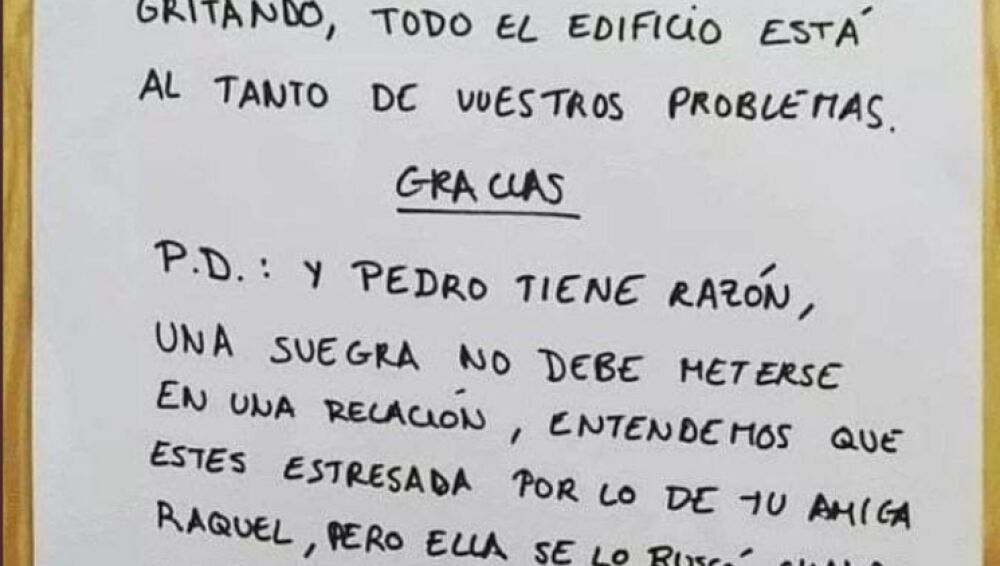 GRITANDO, TODO EL EDIFICIO ESTÁ
AL TANTO DE VUESTROS PROBLEMAS.
GRACIAS
P.D.: Y PEDRO TIENE RAZÓN,
UNA SUEGRA NO DEBE METERSE
EN UNA RELACIÓN, ENTENDEMOS QUE
ESTES ESTRESADA POR LO DE TU AMIGA
RAQUEL, PERO ELLA SE LO BUSCÓ